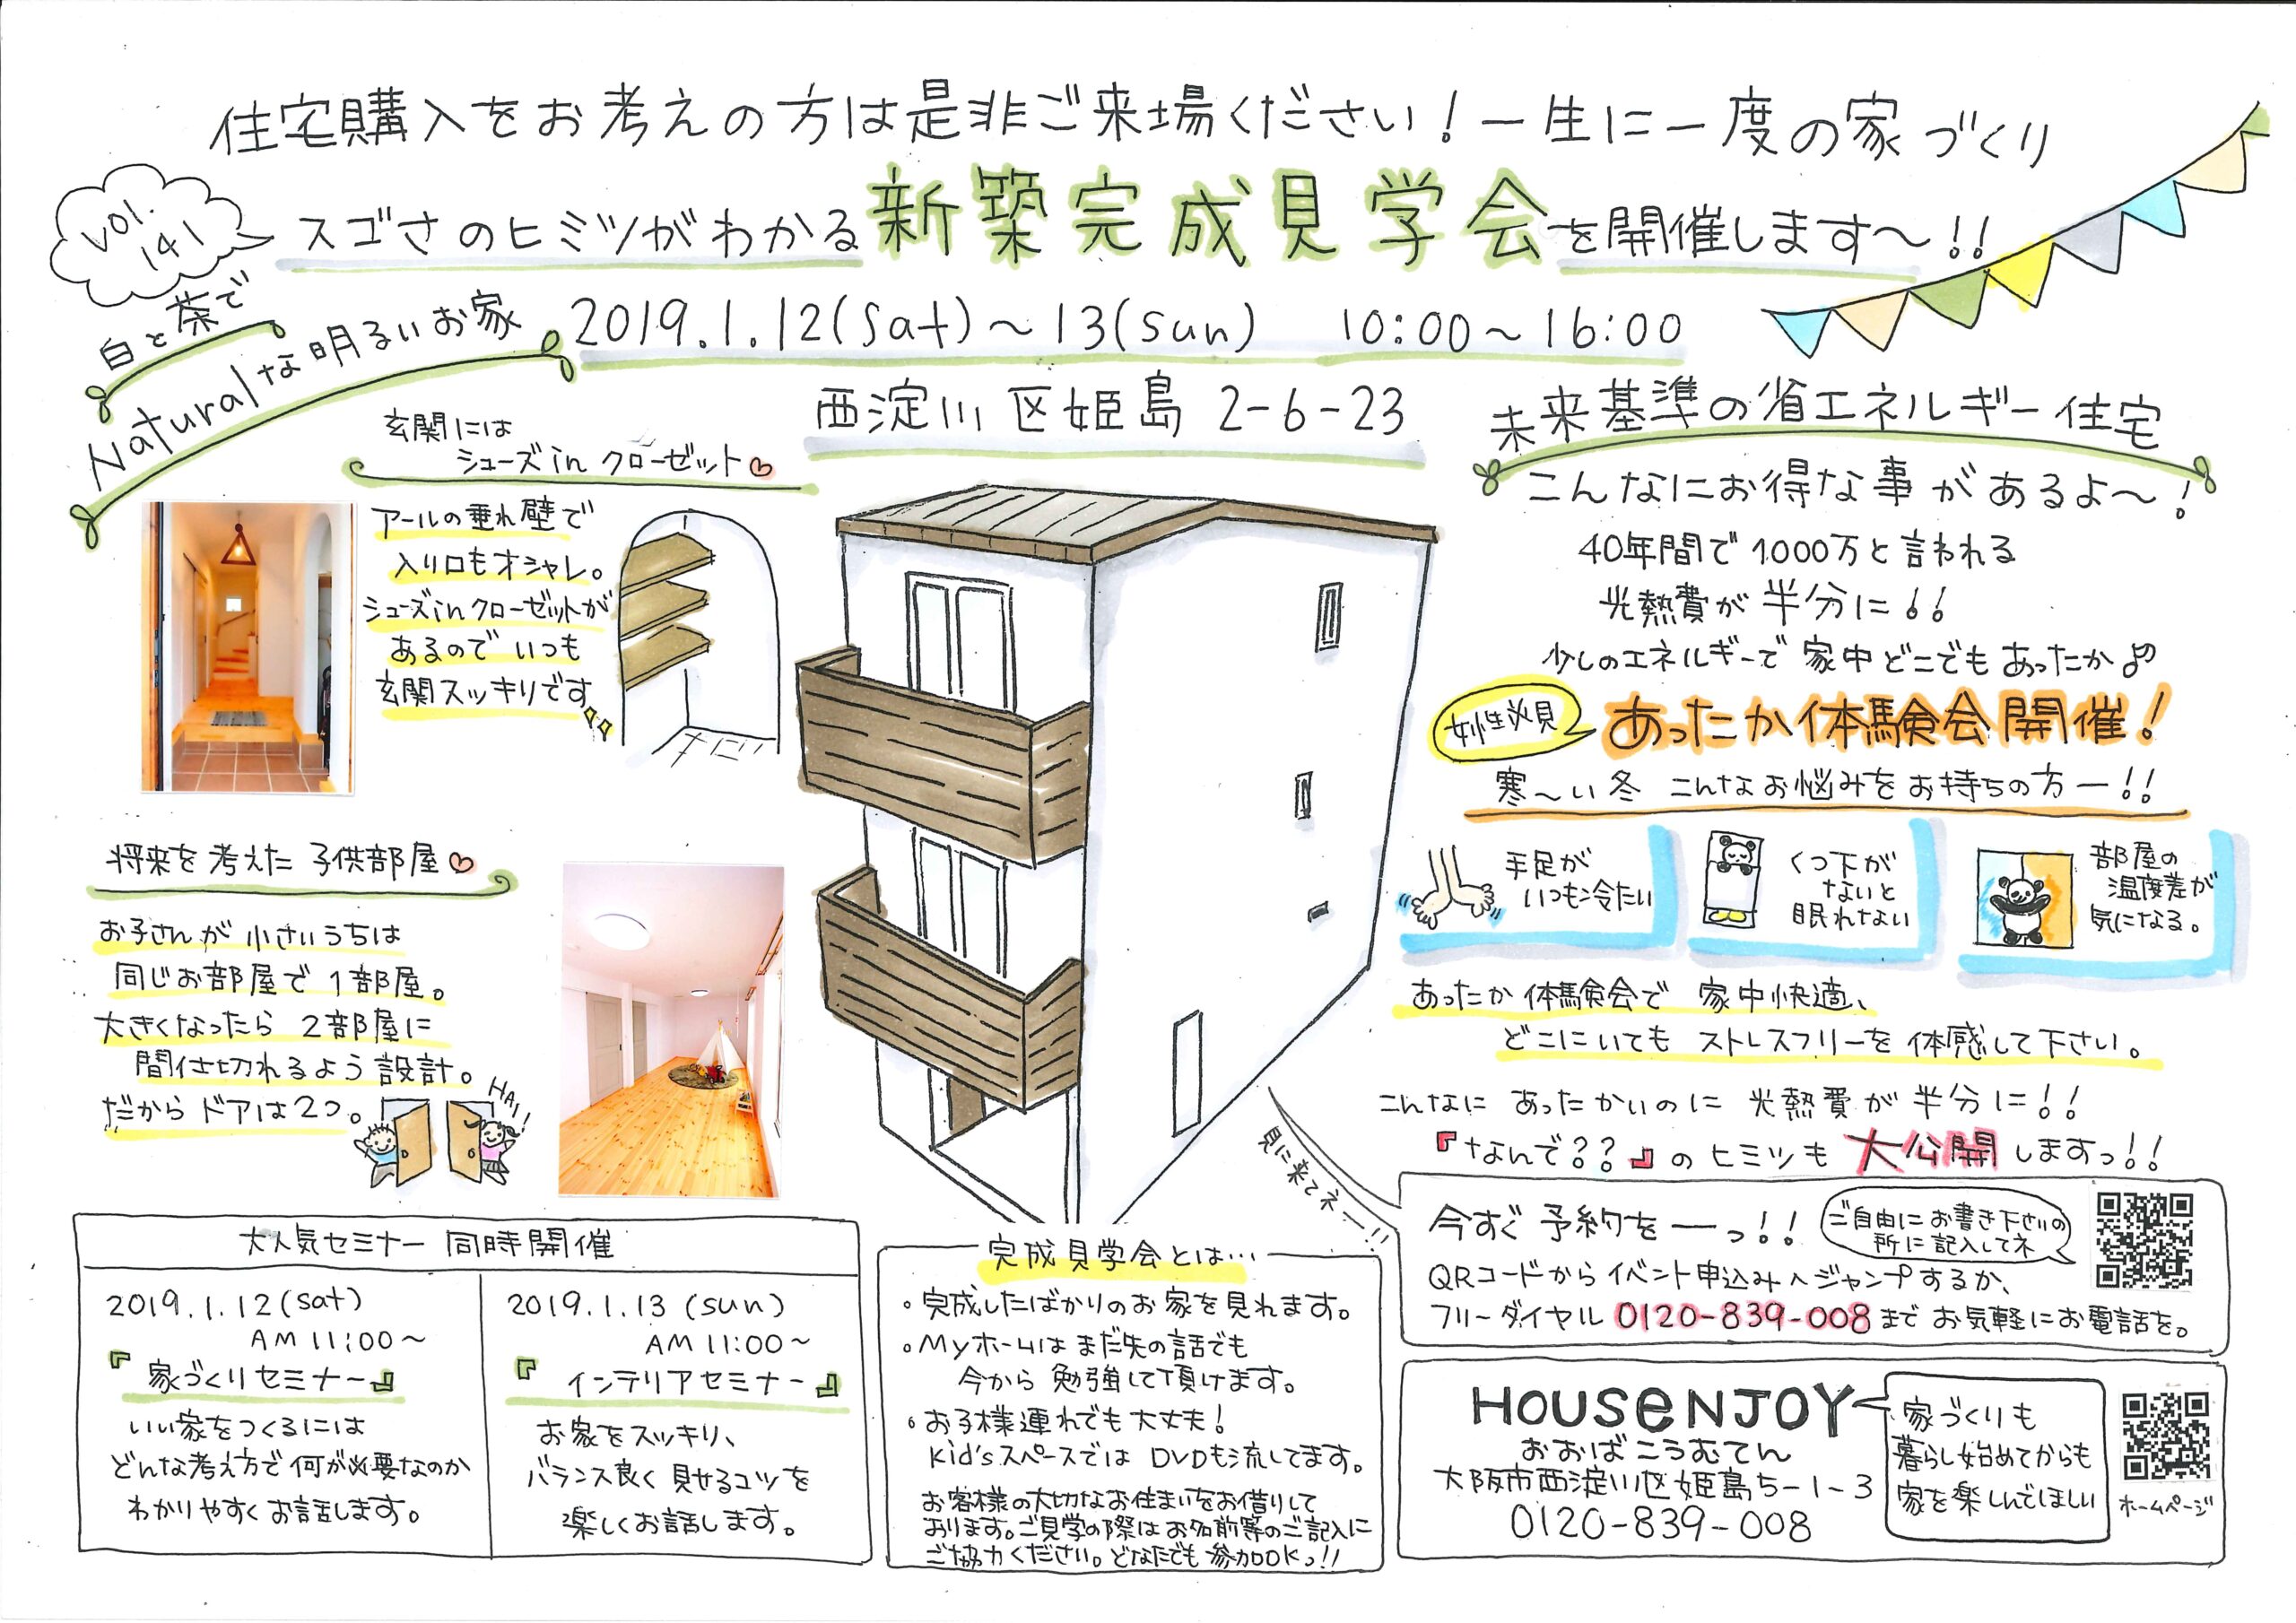 住宅購入をお考えの方は是非ご来場ください！一生に一度の家づくり
VOL.
141
スゴさのヒミツがわかる新築完成見学会を開催します〜!!
白と茶で
Naturalな明るいお家
2019.1.12(sat)〜13(sun) 10:00〜16:00
西淀川区姫島 2-6-23
玄関には
シューズin クローゼット
アールの垂れ壁で
入り口もオシャレ。
シューズinクローゼットが
あるので いつも
玄関スッキリです
将来を考えた 子供部屋
お子さんが 小さいうちは
同じお部屋で 1部屋。
大きくなったら 2部屋に
間仕切れるよう 設計。
だから ドアは2つ。
HAi!
未来基準の省エネルギー住宅
こんなにお得な事があるよ〜!
40年間で 1000万と言われる
光熱費が 半分に!!
少しのエネルギーで 家中どこでもあったか♪
女性必見
あったか体験会開催!
寒〜い冬 こんなお悩みをお持ちの方ー!!
手足が
いつも冷たい
くつ下が
ないと
眠れない
部屋の
温度差が
気になる。
あったか体験会で 家中快適、
どこにいても ストレスフリーを 体感して下さい。
こんなに あったかいのに 光熱費が 半分に!!
『なんで??』のヒミツも 大公開しますっ!!
見に来てネー!!
今すぐ 予約をーっ!!
ご自由にお書き下さいの
所に記入してネ
QRコードから イベント申込みへジャンプするか、
フリーダイヤル 0120-839-008まで お気軽にお電話を。
大人気セミナー 同時開催
2019.1.12(sat)
AM 11:00〜
『家づくりセミナー』
いい家をつくるには
どんな考え方で 何が必要なのか
わかりやすく お話します。
2019.1.13 (sun)
AM 11:00〜
『インテリアセミナー』
お家をスッキリ、
バランス良く 見せるコツを
楽しくお話します。
完成見学会とは…
・完成したばかりのお家を見れます。
・Myホームは まだ先の話でも
今から 勉強して頂けます。
・お子様連れでも大丈夫!
kid'sスペースでは DVDも流してます。
お客様の大切なお住まいをお借りして
おります。ご見学の際はお名前等のご記入に
ご協力ください。どなたでも参加OKっ!!
HOUSeNJOY
おおばこうむてん
大阪市西淀川区姫島5-1-3
0120-839-008
家づくりも
暮らし始めてからも
家を楽しんでほしい
ホームページ